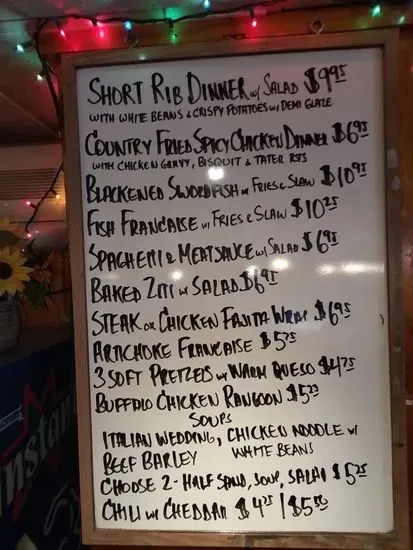 SHORT RIB DINNER w/ SALAD $9.95
WITH WHITE BEANS & CRISPY POTATOES w/ DEMI GLAZE
COUNTRY FRIED SPICY CHICKEN DINNER $6.95
WITH CHICKEN GRAVY, BISQUIT & TATER TOTS
BLACKENED SWORDFISH w/ FRIES & SLAW $10.95
FISH FRANCAISE w/ FRIES & SLAW $10.25
SPAGHETTI & MEATSAUCE w/ SALAD $6.95
BAKED ZITI w/ SALAD $6.95
STEAK OR CHICKEN FAJITA WRAP $6.95
ARTICHOKE FRANCAISE $5.75
3 SOFT PRETZELS w/ WARM QUESO $4.75
BUFFALO CHICKEN RANGOON $5.25
SOUPS
ITALIAN WEDDING, CHICKEN NOODLE w/
BEEF BARLEY WHITE BEANS
CHOOSE 2 - HALF SAND, SOUP, SALAD $5.25
CHILI w/ CHEDDAR $4.25 | $5.50
Instant